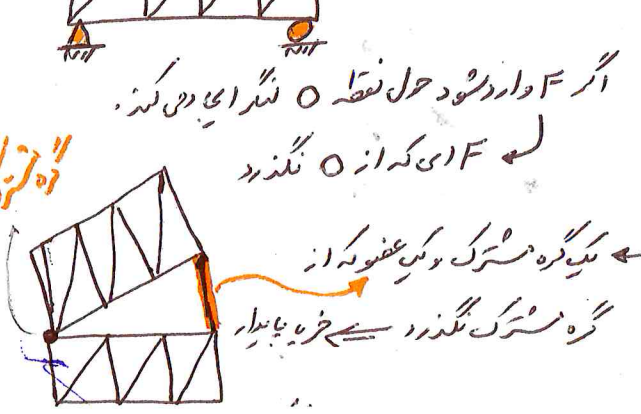 اگر F وارد شود حول نقطه O لنگر ایجاد می کند.
F ای که از O نگذرد
گره مشترک
← یک گره مشترک و یک عضو که از
گره مشترک نگذرد ⇐ خرپا پایدار